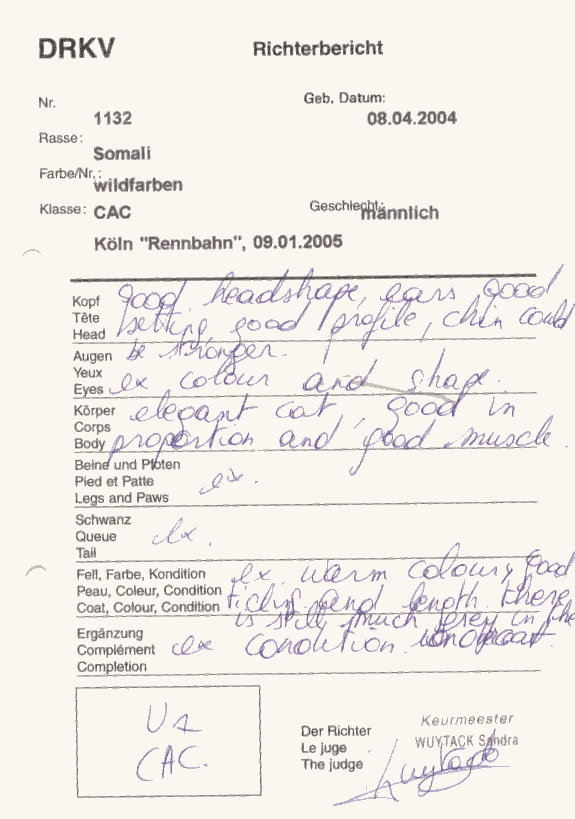 DRKV
Richterbericht
Nr.
1132
Geb. Datum:
08.04.2004
Rasse:
Somali
Farbe/Nr.:
wildfarben
Klasse: CAC
Geschlecht: männlich
Köln "Rennbahn", 09.01.2005
Kopf
Tête
Head
good headshape, ears good
setting good profile, chin could
be stronger.
Augen
Yeux
Eyes
ex colour and shape.
Körper
Corps
Body
elegant cat, good in
proportion and good muscle.
Beine und Pfoten
Pied et Patte
Legs and Paws
ex.
Schwanz
Queue
Tail
ex.
Fell, Farbe, Kondition
Peau, Coleur, Condition
Coat, Colour, Condition
ex warm colour, good
and length there
is still much grey in the
Ergänzung
Complément
Completion
ex condition
CAC.
Der Richter
Le juge
The judge
Keurmeester
WUYTACK Sandra
Wuytack